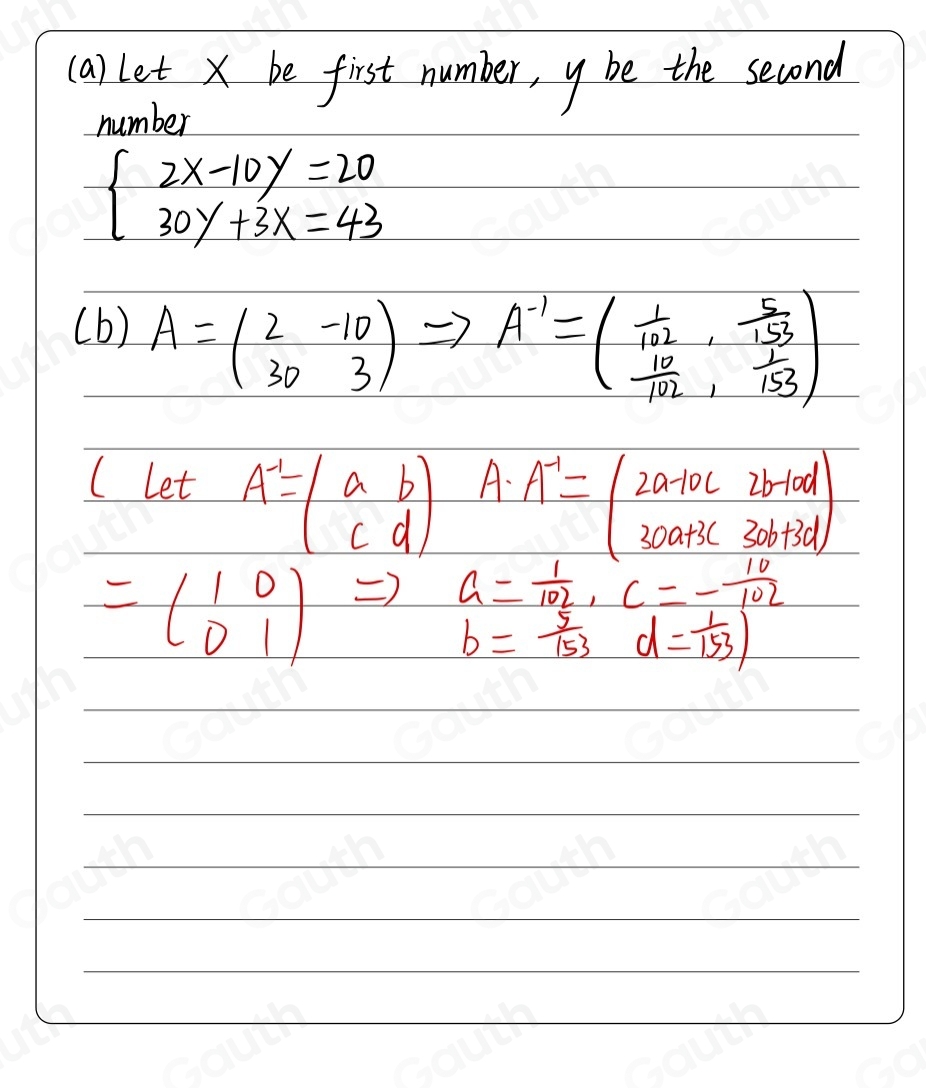 (a) Let x be first number, y be the second
number
{ 2x-10y = 20
30y+3x = 43
(b) A = ( 2 -10 ) => A⁻¹ = ( 1/102 , 5/153 )
( 30 3 ) ( 10/102 , 1/153 )
( Let A⁻¹ = ( a b ) A·A⁻¹ = ( 2a-10c 2b-10d )
( c d ) ( 30a+3c 30b+3d )
= ( 1 0 ) => a = 1/102 , c = -10/102
( 0 1 ) b = 5/153 d = 1/153 )
Gauth